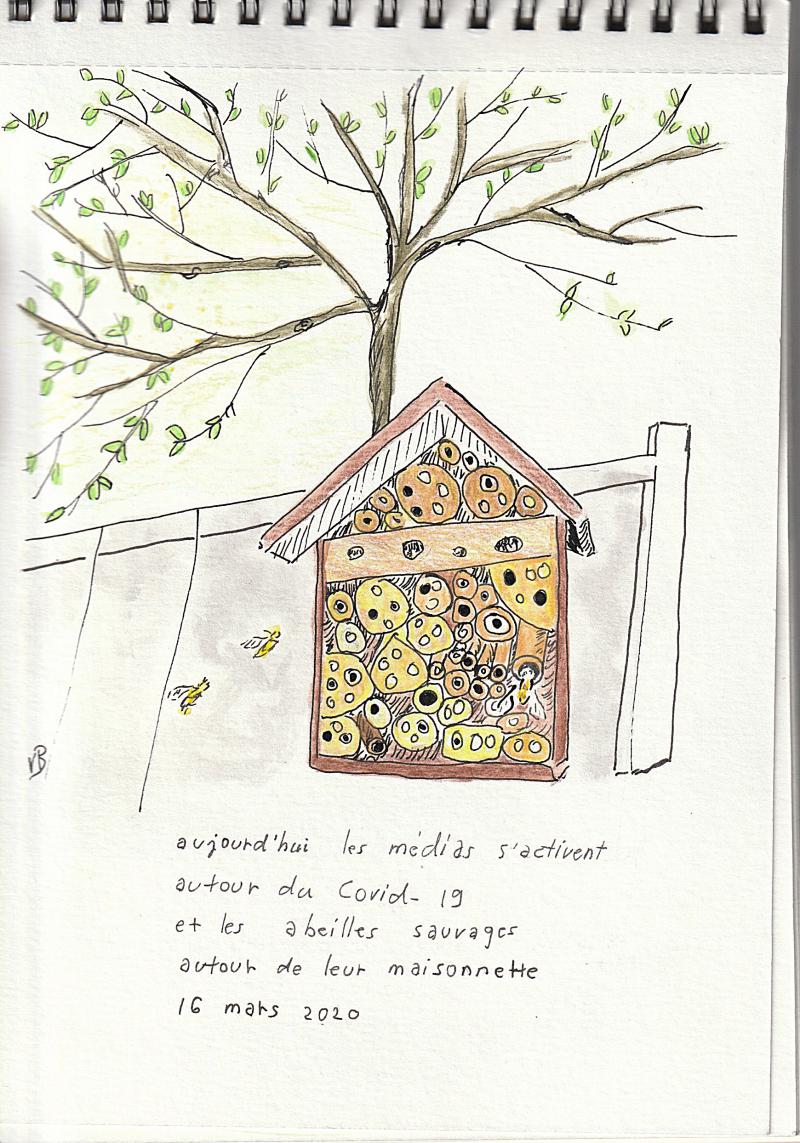 VB
aujourd'hui les médias s'activent
autour du Covid-19
et les abeilles sauvages
autour de leur maisonnette
16 mars 2020